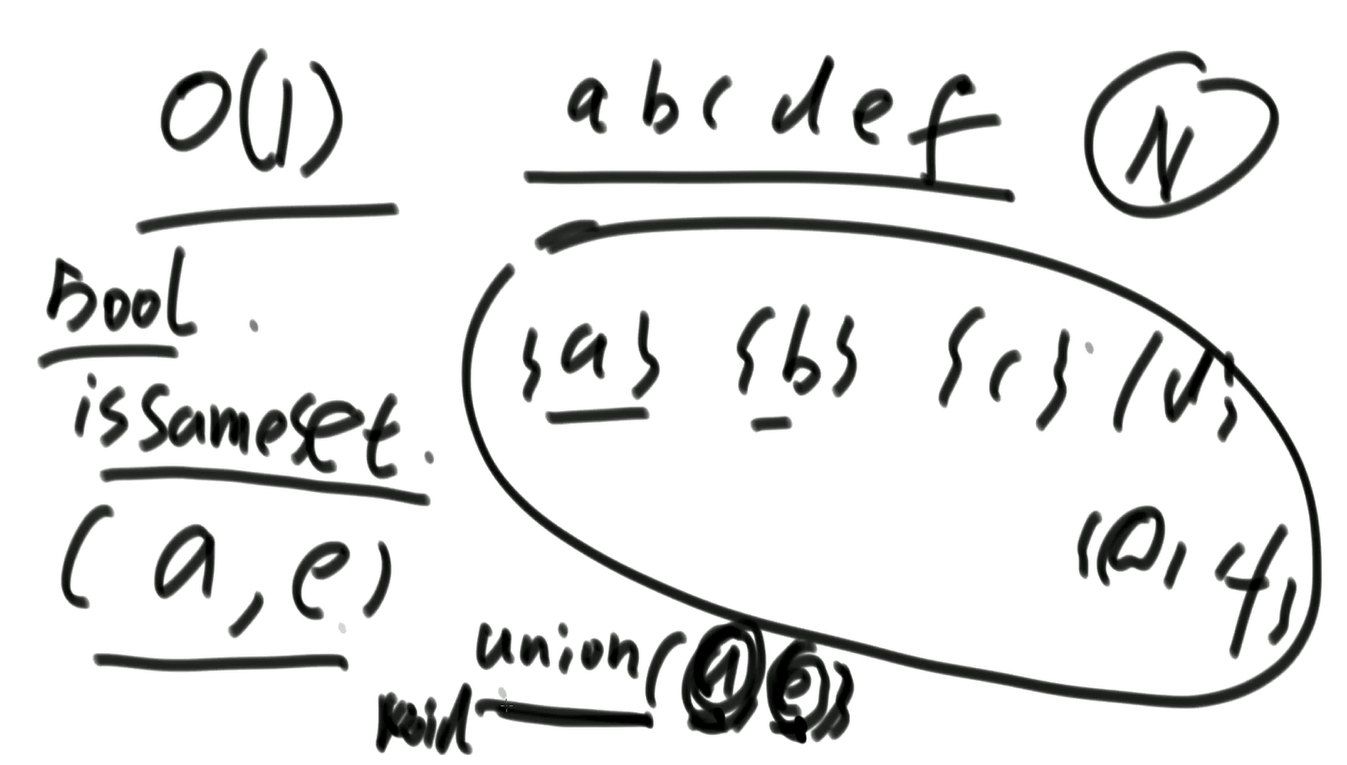 O(1) abcdef N
Bool {a} {b} {c} {d}
isSameSet
(a, e) {e} {f}
union(a e)
void